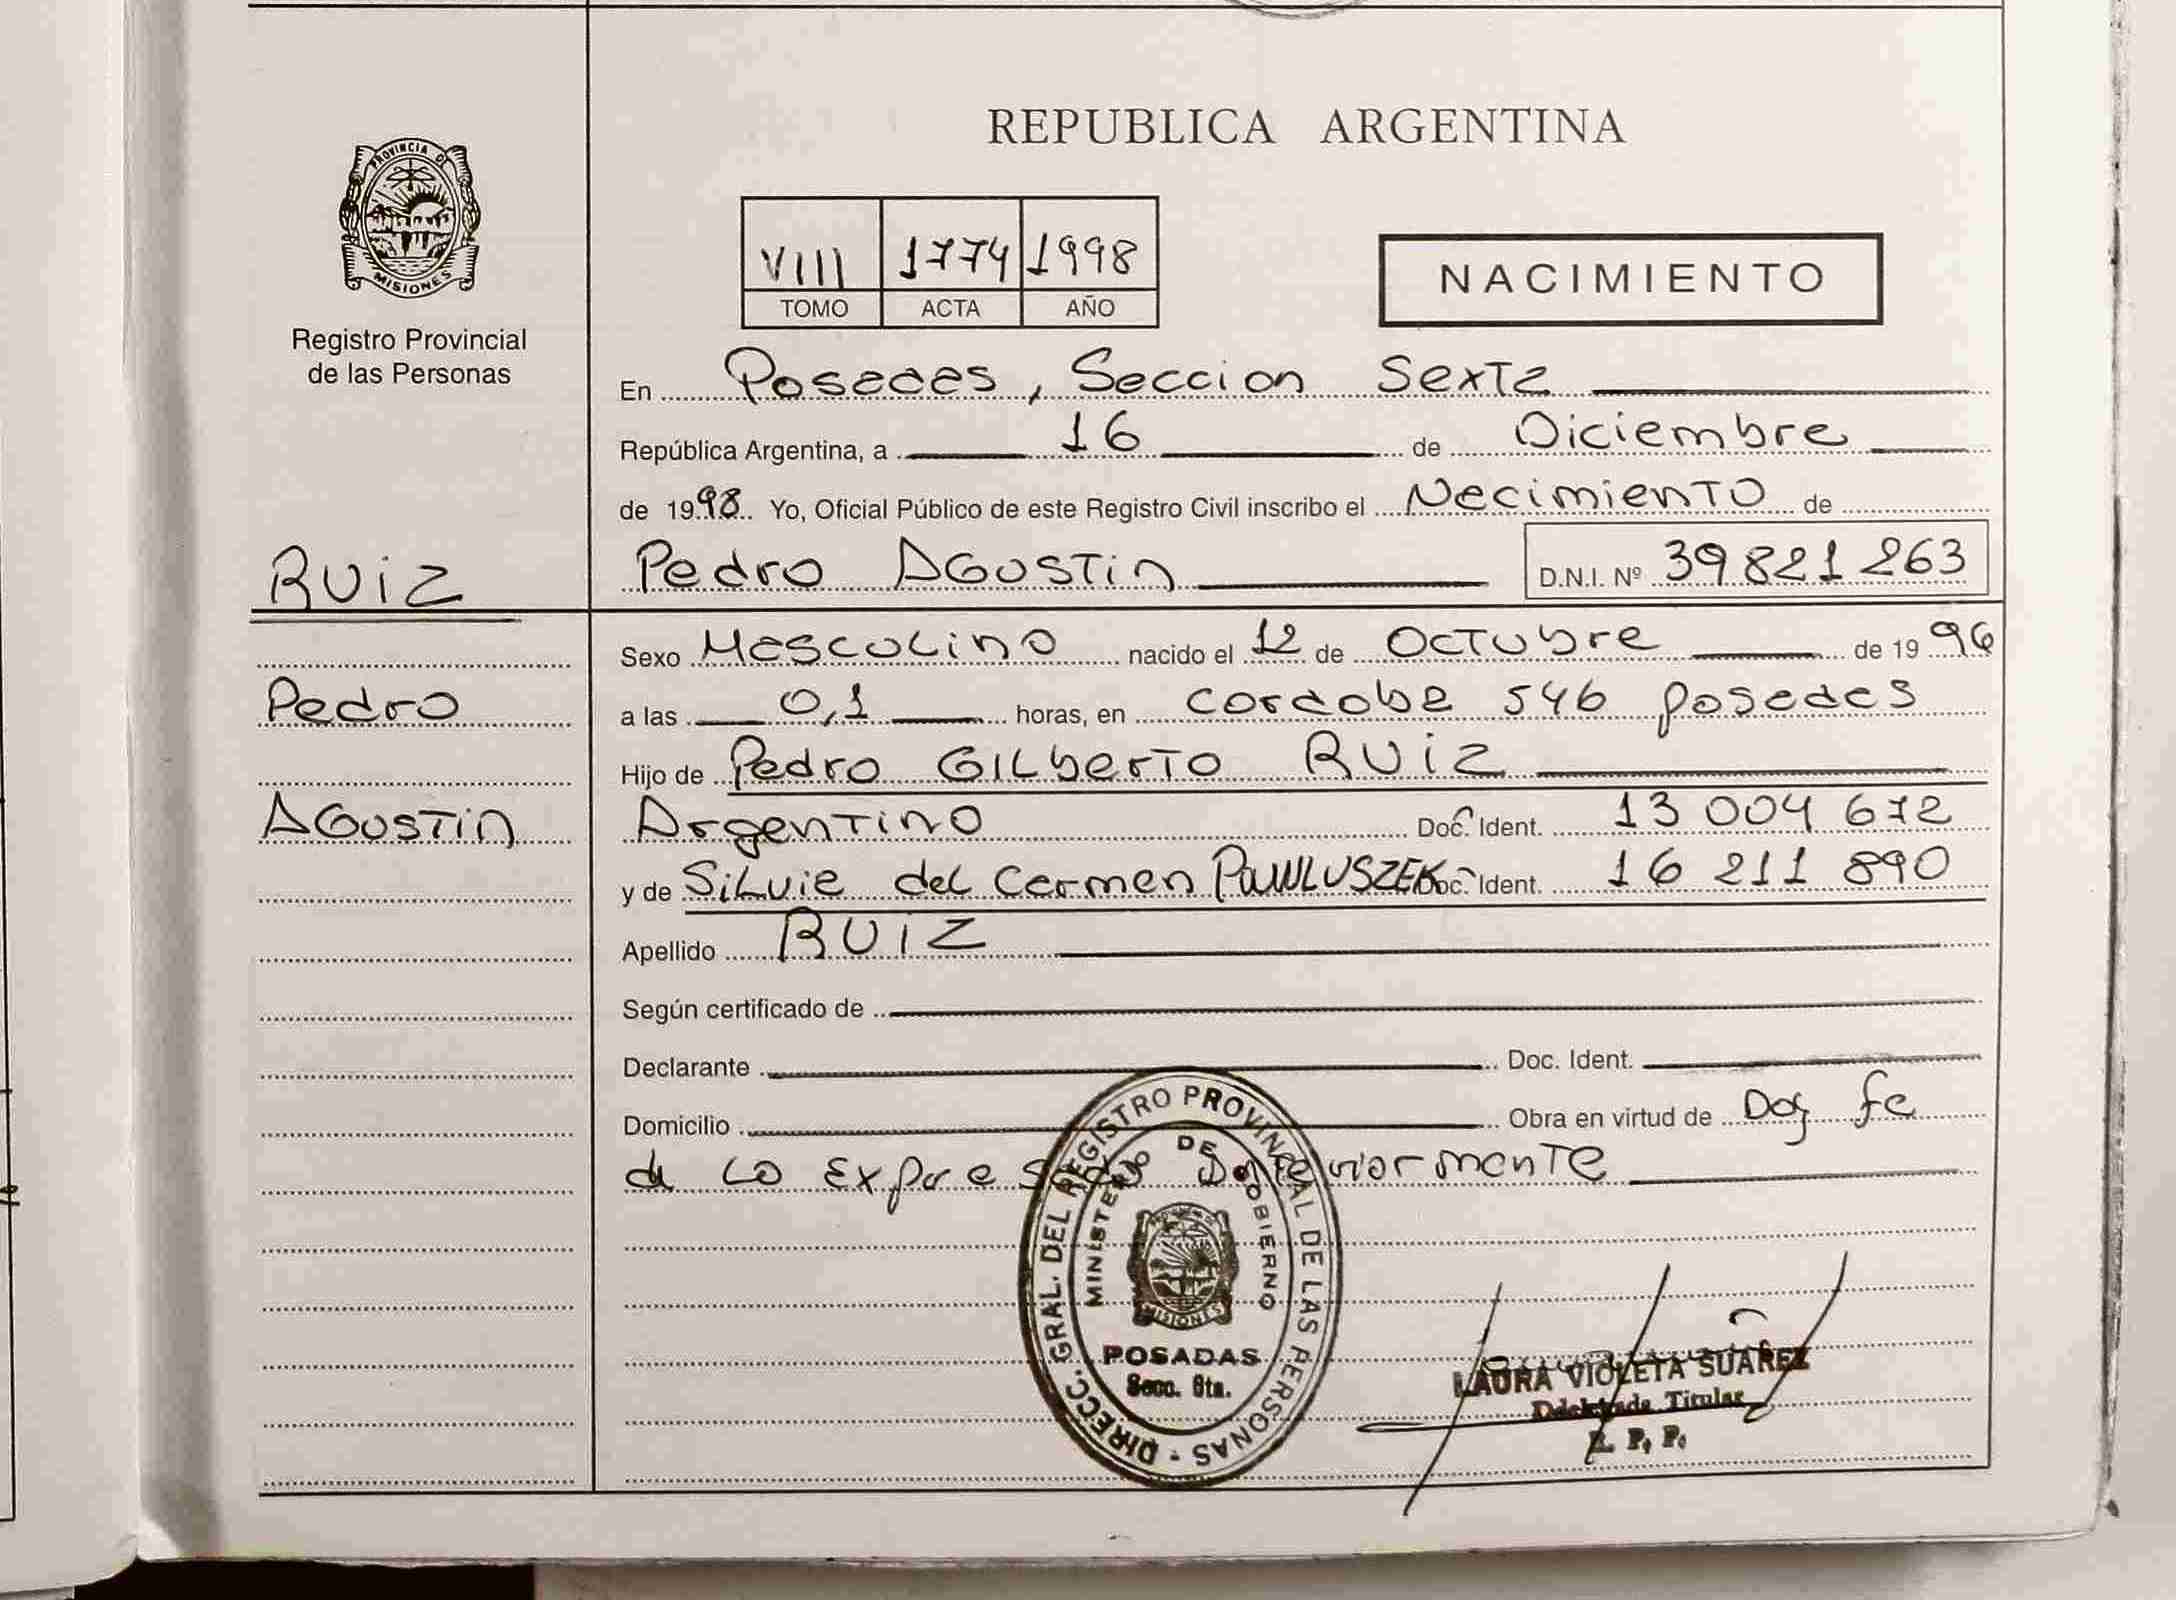 PROVINCIA DE
MISIONES
Registro Provincial
de las Personas
REPUBLICA ARGENTINA
VIII 1774 1998
TOMO ACTA AÑO
NACIMIENTO
En Posadas, Seccion Sexta
República Argentina, a 16 de Diciembre
de 1998. Yo, Oficial Público de este Registro Civil inscribo el Nacimiento de
RUIZ
Pedro Agustin D.N.I. Nº 39 821 263
Sexo Masculino nacido el 12 de Octubre de 1996
Pedro
a las 0,1 horas, en cordoba 546 posadas
Hijo de Pedro Gilberto RUIZ
Agustin
Argentino Doc. Ident. 13 004 672
y de Silvia del Carmen PAWLUSZEK Doc. Ident. 16 211 890
Apellido RUIZ
Según certificado de
Declarante Doc. Ident.
Domicilio Obra en virtud de Doy fe
de lo Expresado Anteriormente
DIRECC. GRAL. DEL REGISTRO PROVINCIAL DE LAS PERSONAS
MINISTERIO DE GOBIERNO
MISIONES
POSADAS
Secc. 6ta.
LAURA VIOLETA SUAREZ
Delegada Titular
R. P. P.